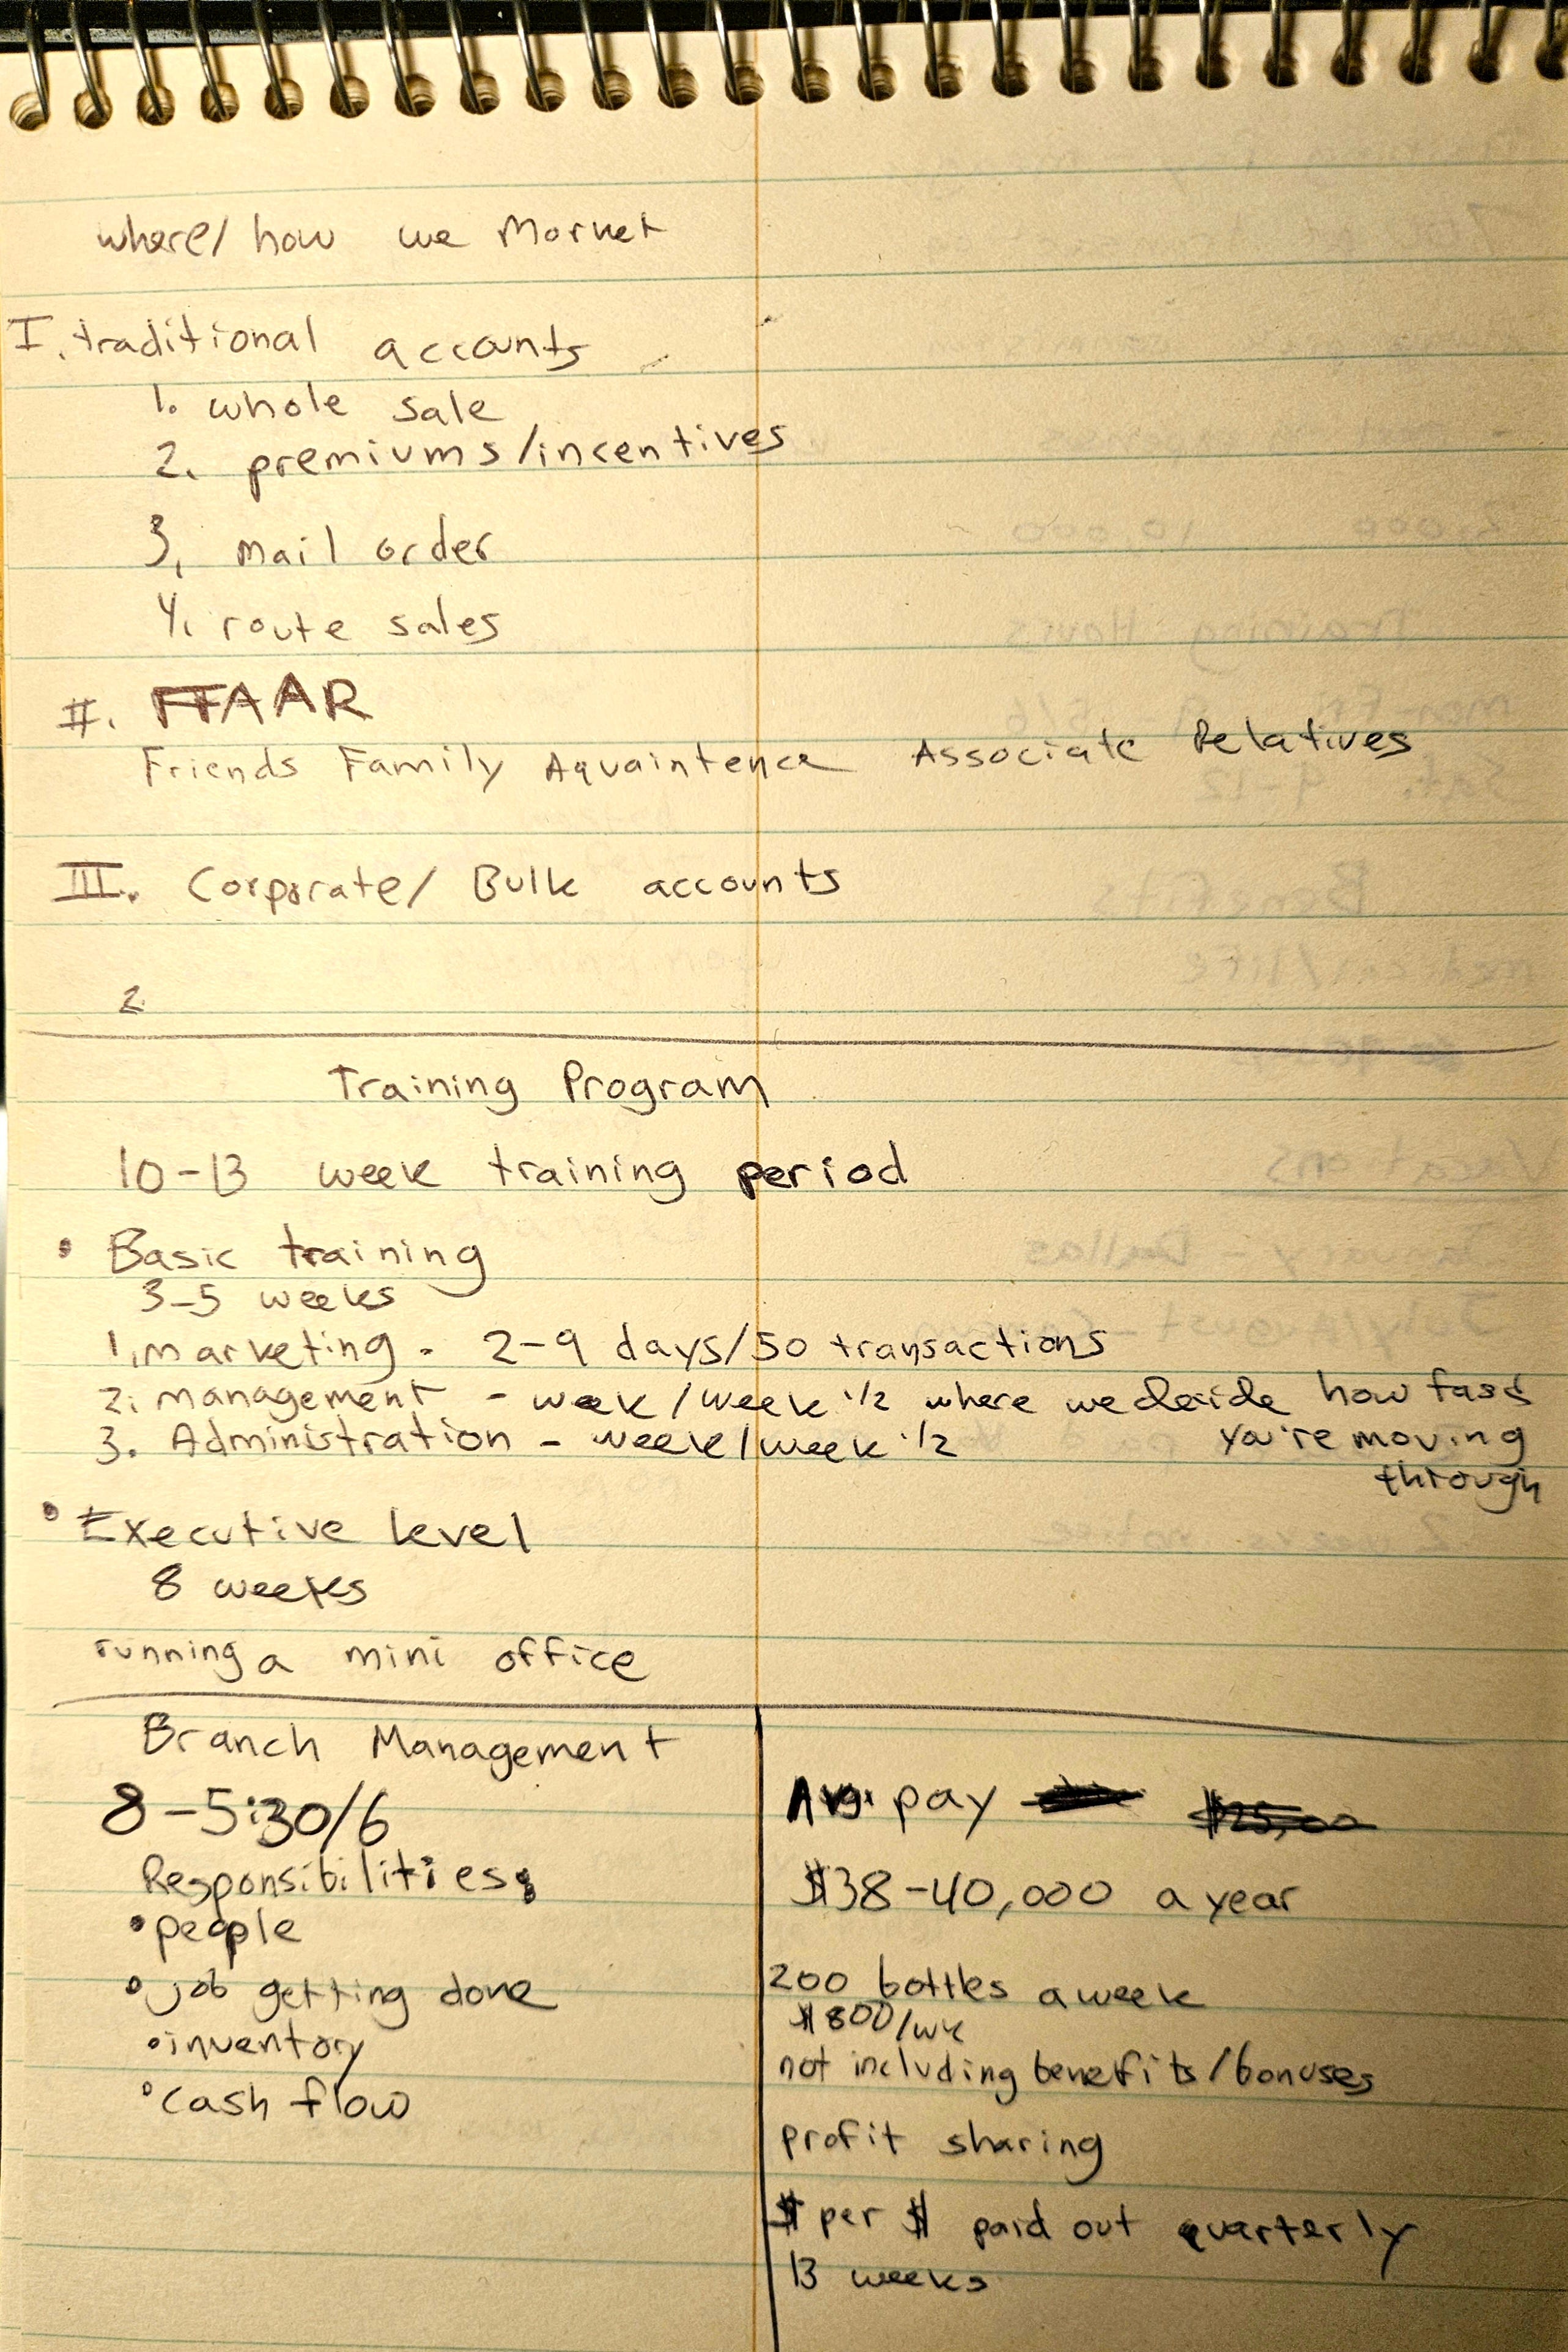 where/ how we Market
I. traditional accounts
1. whole sale
2. premiums/incentives
3. mail order
4. route sales
II. FFAAR
Friends Family Aquaintence Associate Relatives
III. Corporate/ Bulk accounts
2.
Training Program
10-13 week training period
• Basic training
3-5 weeks
1. marketing - 2-9 days/50 transactions
2. management - week/week 1/2 where we decide how fast
3. Administration - week/week 1/2 you're moving
through
• Executive level
8 weeks
running a mini office
Branch Management
8-5:30/6
Responsibilities:
• people
• job getting done
• inventory
• cash flow
Avg. pay $25,00
$38-40,000 a year
200 bottles a week
$800/wk
not including benefits/bonuses
profit sharing
$ per $ paid out quarterly
13 weeks